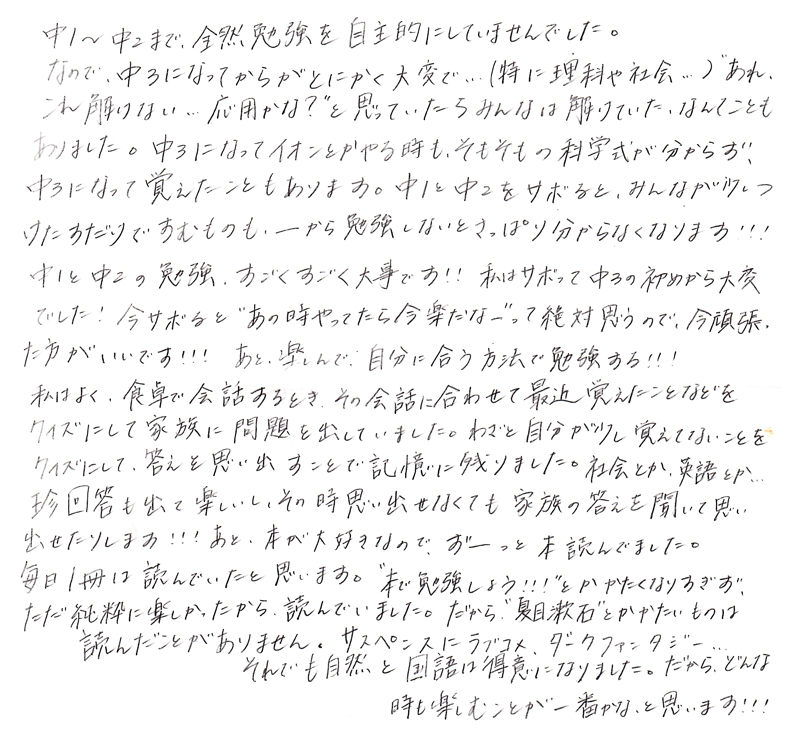 中1〜中2まで、全然勉強を自主的にしていませんでした。
なので、中3になってからがとにかく大変で…(特に理科や社会…)"あれ、
これ解けない…応用かな?"と思っていたらみんなは解けていた、なんてことも
ありました。中3になってイオンとかやる時も、そもそもの科学式が分からず、
中3になって覚えたこともあります。中1と中2をサボると、みんなが少しつ
けたすだけですむものも、一から勉強しないとさっぱり分からなくなります!!!
中1と中2の勉強、すごくすごく大事です!! 私はサボって中3の初めから大変
でした! 今サボると"あの時やってたら今楽だなー"って絶対思うので、今頑張っ
た方がいいです!!! あと、楽しんで、自分に合う方法で勉強する!!!
私はよく、食卓で会話するとき、その会話に合わせて最近覚えたことなどを
クイズにして家族に問題を出していました。わざと自分が少し覚えてないことを
クイズにして、答えを思い出すことで記憶に残りました。社会とか、英語とか…
珍回答も出て楽しいし、その時思い出せなくても家族の答えを聞いて思い
出せたりします!!! あと、本が大好きなので、ずーっと本読んでました。
毎日1冊は読んでいたと思います。"本で勉強しよう!!!"とかかたくなりすぎず、
ただ純粋に楽しかったから、読んでいました。だから"夏目漱石"とかかたいものは
読んだことがありません。サスペンスにラブコメ、ダークファンタジー…
それでも自然と国語は得意になりました。だから、どんな
時も楽しむことが一番かな、と思います!!!